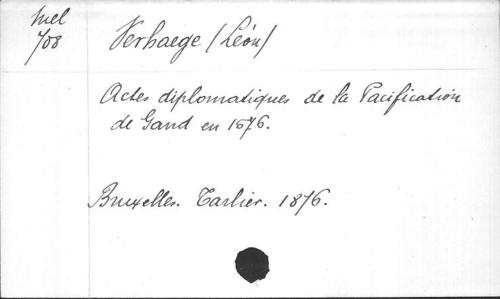 Mel
708
Verhaege (Léon)
Actes diplomatiques de la Pacification
de Gand en 1676.
Bruxelles. Tarlier. 1876.